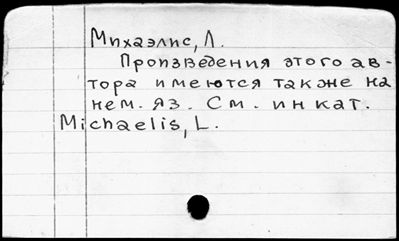 Михаэлис, Л.
Произведения этого ав-
тора имеются также на
нем. яз. См. ин кат.
Michaelis, L.